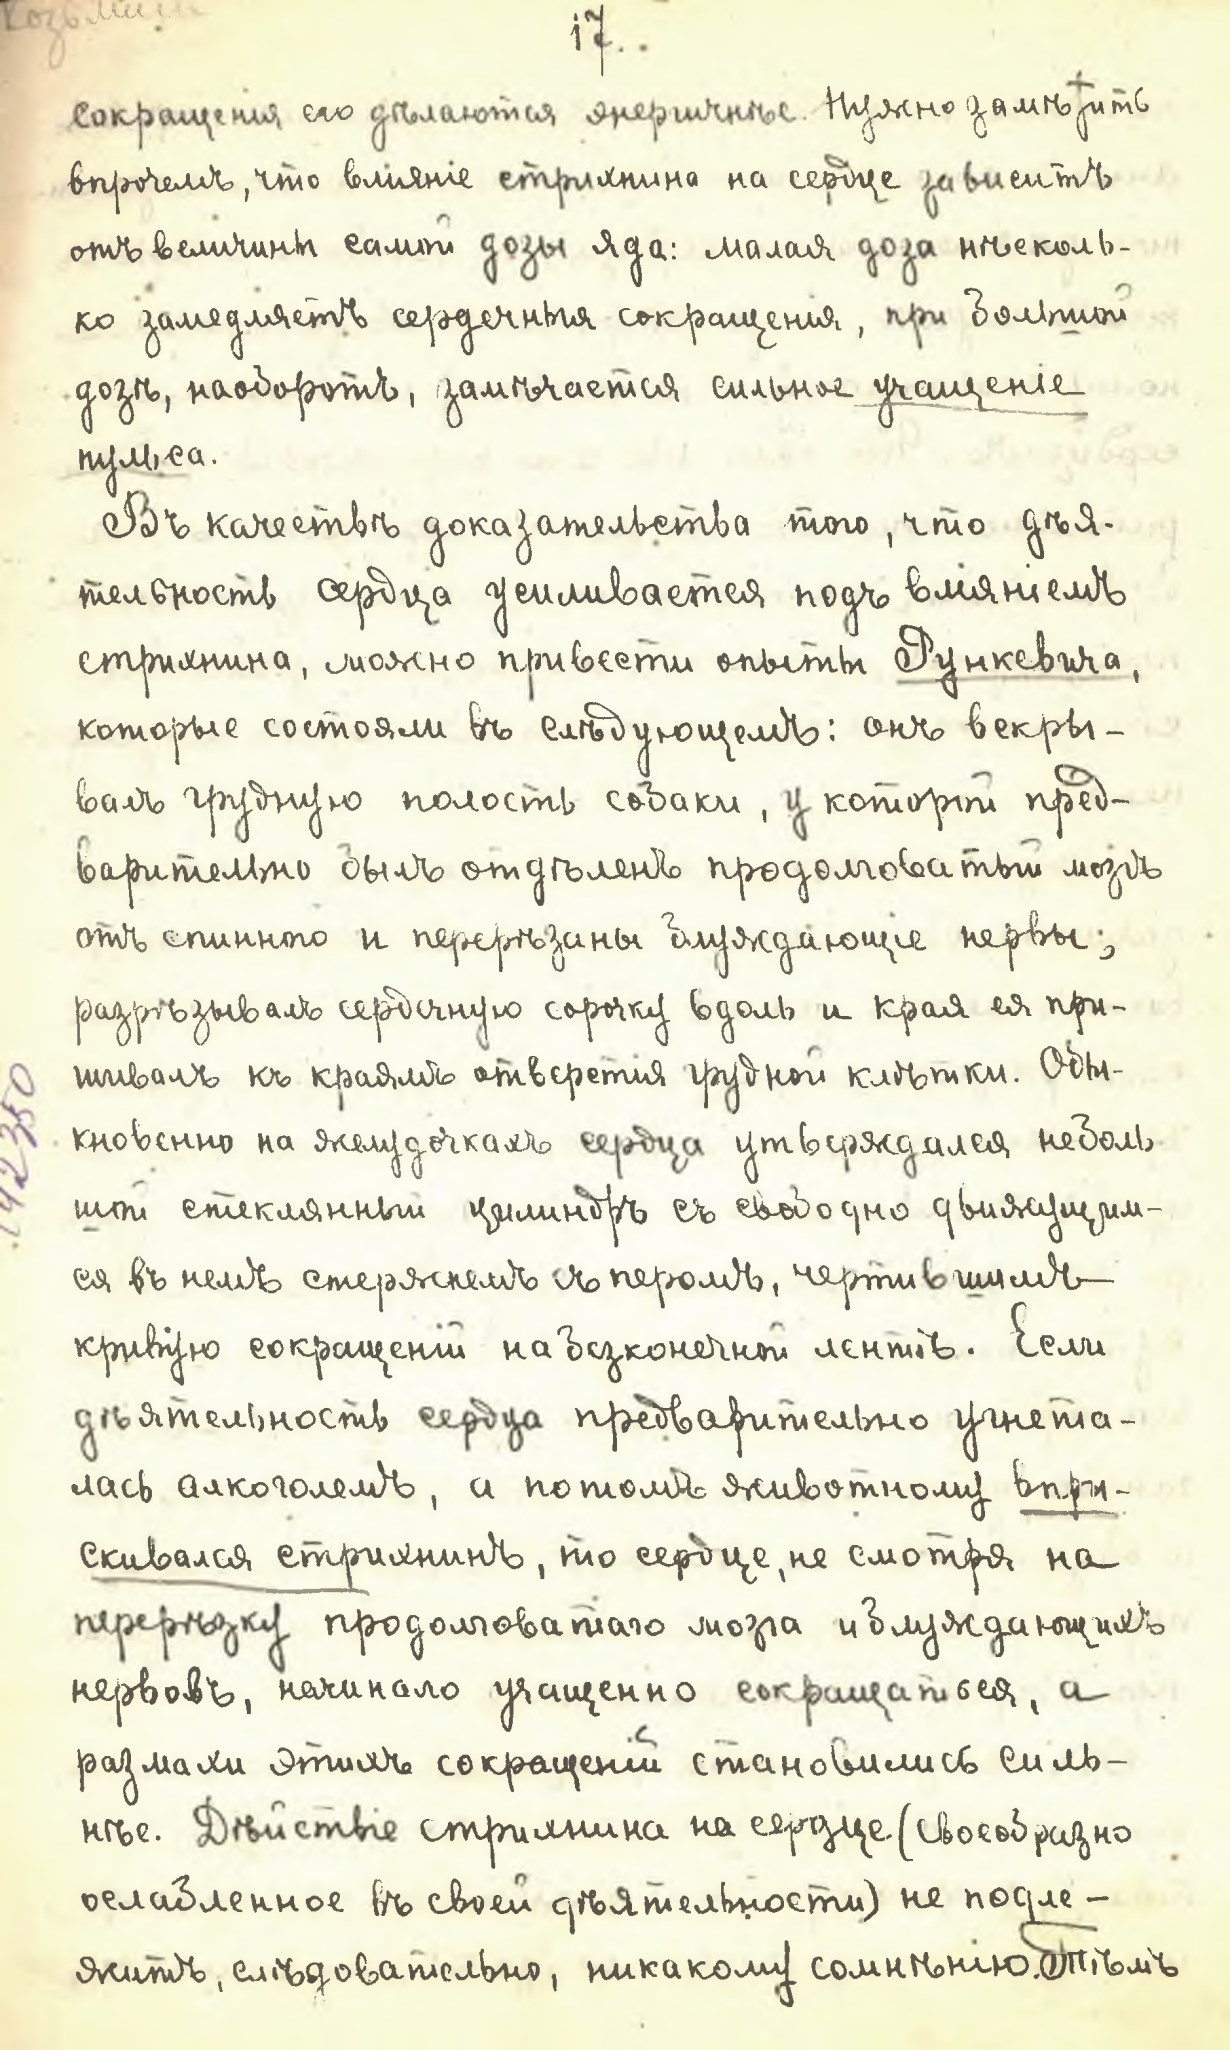 Козьмин
17.
сокращенія его дѣлаются энергичнѣе. Нужно замѣтить
впрочемъ, что вліяніе стрихнина на сердце зависитъ
отъ величины самой дозы яда: малая доза нѣсколь-
ко замедляетъ сердечныя сокращенія, при большой
дозѣ, наоборотъ, замѣчается сильное учащеніе
пульса.
Въ качествѣ доказательства того, что дѣя-
тельность сердца усиливается подъ вліяніемъ
стрихнина, можно привести опыты Рункевича,
которые состояли въ слѣдующемъ: онъ вскры-
валъ грудную полость собаки, у которой пред-
варительно былъ отдѣленъ продолговатый мозгъ
отъ спинного и перерѣзаны блуждающіе нервы;
разрѣзывалъ сердечную сорочку вдоль и края ея при-
шивалъ къ краямъ отверстія грудной клѣтки. Обы-
кновенно на желудочкахъ сердца утверждался неболь
шой стеклянный цилиндръ съ свободно движущим-
ся въ немъ стержнемъ съ перомъ, чертившимъ
кривую сокращеній на безконечной лентѣ. Если
дѣятельность сердца предварительно угнета-
лась алкоголемъ, а потомъ животному впры-
скивался стрихнинъ, то сердце, не смотря на
перерѣзку продолговатаго мозга и блуждающихъ
нервовъ, начинало учащенно сокращаться, а
размахи этихъ сокращеній становились силь-
нѣе. Дѣйствіе стрихнина на сердце (своеобразно
ослабленное въ своей дѣятельности) не подле-
житъ, слѣдовательно, никакому сомнѣнію. Тѣмъ
142350